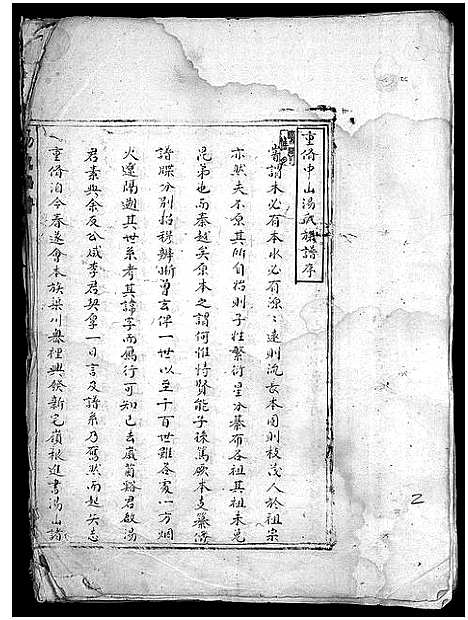 重脩中山湯氏族譜序
嘗謂木必有本水必有源源遠則流長本固則枝茂人於祖宗
亦然夫不原其所自始則子姓繁衍星分碁布各祖其祖未免
昆弟也而秦越矣原本之謂何惟恃賢能子孫篤厥本支纂脩
譜牒分別昭穆辨晰曾玄俾一世以至千百世雖各處一方烟
火遼隔邇其世系考其諱字而鴈行可知已去歲菊谿君啟湯
君素與余友公咸李君契拿一日言及譜系乃奮然而起矢志
重脩洎今春遂會本族梁川繫裡興發新宅嶺根進書湯山諸
2